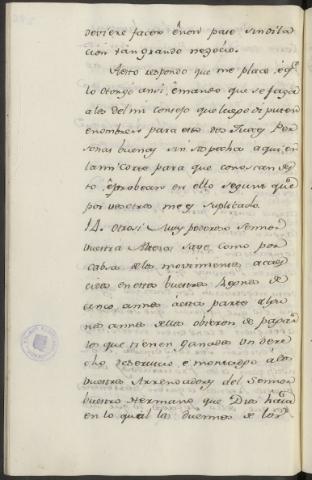 deviere facer é non pase sin dila
cion tan grande negócio.
Aesto respondo que me place, é yo
lo otorgo ansi, é mando que se faga
a los del mi consejo que luego diputen
é nombren para esto dos ó tres Per
sonas buenas sin sospecha aqui en
la mi corte para que conoscan de
to é probean en ello segunt que
por vosotros me es suplicado.
14. otrosi Muy poderoso Sennor
vuestra Alteza save como por
cabsa de los movimientos acaes
cidos en estos vuestros Regnos de
cinco annos á esta parte algu
nos annos dellos obieron de pagar
los que tienen ganados un dere
cho de servicio é montazgo á los
vuestros Arrendadores del Sennor
vuestro Hermano que Dios haia
en lo qual los duennos de los